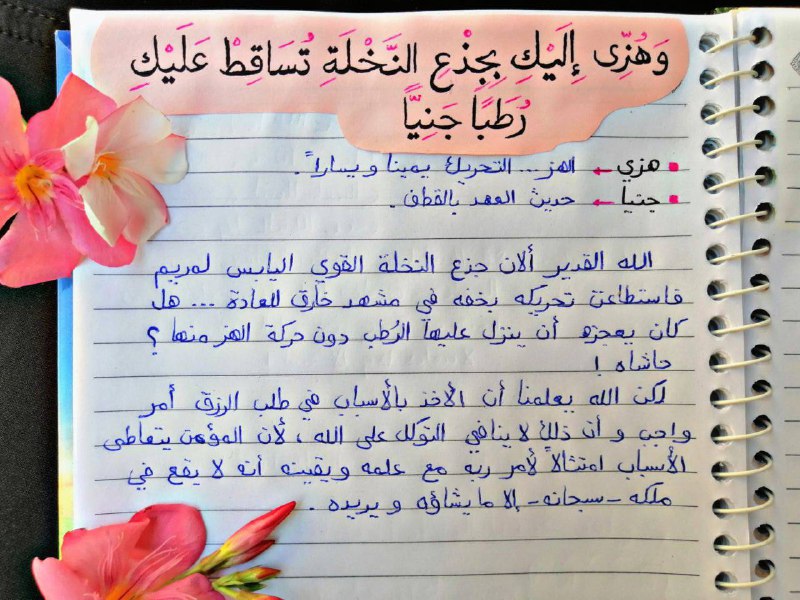 وَهُزِّى إِلَيْكِ بِجِذْعِ النَّخْلَةِ تُسَاقِطْ عَلَيْكِ
رُطَبًا جَنِيًّا
هزي ← الهز... التحريك يمينا و يساراً.
جنيا ← حديث العهد بالقطف.
الله القدير ألان جزع النخلة القوي اليابس لمريم
فاستطاعت تحريكه بخفه في مشهد خارق للعادة ... هل
كان يعجزه أن ينزل عليها الرُطب دون حركة الهز منها ؟
حاشاه !
لكن الله يعلمنا أن الأخذ بالأسباب في طلب الرزق أمر
واجب و أن ذلك لا ينافي التوكل على الله ، لأن المؤمن يتعاطى
الأسباب امتثالاً لأمر ربه مع علمه و يقينه أنه لا يقع في
ملكه - سبحانه - إلا ما يشاؤه و يريده .